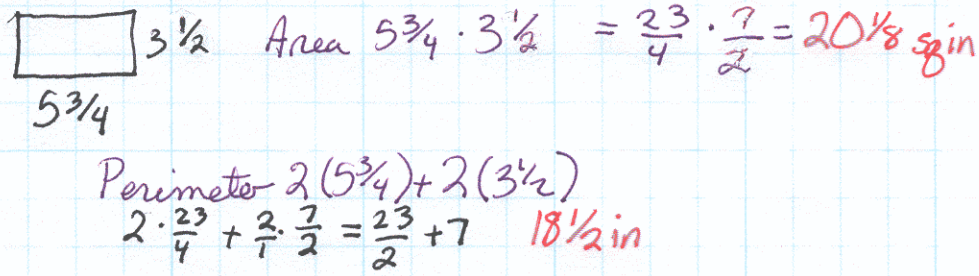 3 1/2 Area 5 3/4 · 3 1/2 = 23/4 · 7/2 = 20 1/8 sq in
5 3/4
Perimeter 2(5 3/4) + 2(3 1/2)
2 · 23/4 + 2/1 · 7/2 = 23/2 + 7 18 1/2 in